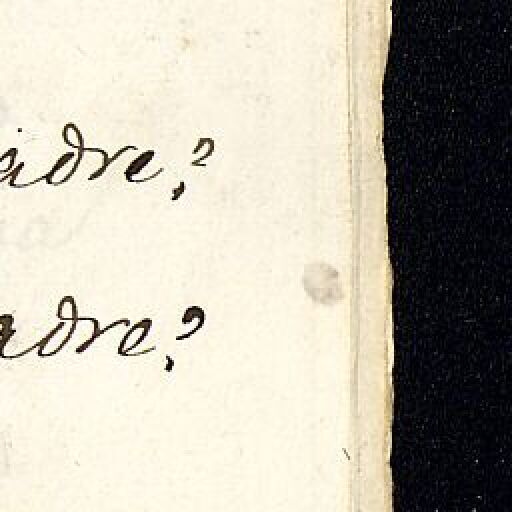 adre?
adre?